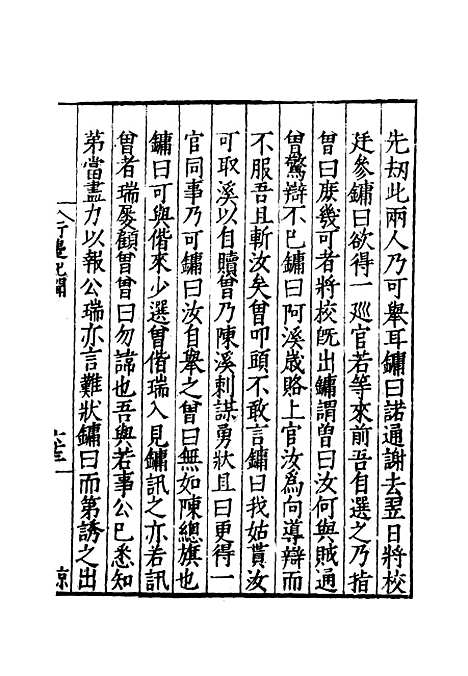 先刼此兩人乃可舉耳鏞曰諾通謝去翌日將校
廷參鏞曰欲得一廵官若等來前吾自選之乃指
曾曰庻幾可者將校旣出鏞謂曾曰汝何與賊通
曾驚辯不巳鏞曰阿溪歲賂上官汝為向導辯而
不服吾且斬汝矣曾叩頭不敢言鏞曰我姑貰汝
可取溪以自贖曾乃陳溪剌謀勇狀且曰更得一
官同事乃可鏞曰汝自舉之曾曰無如陳總旗也
鏞曰可與偕來少選曾偕瑞入見鏞訊之亦若訊
曾者瑞屡顧曾曾曰勿諱也吾與若事公巳悉知
第當盡力以報公瑞亦言難狀鏞曰而第誘之出
行邊紀聞